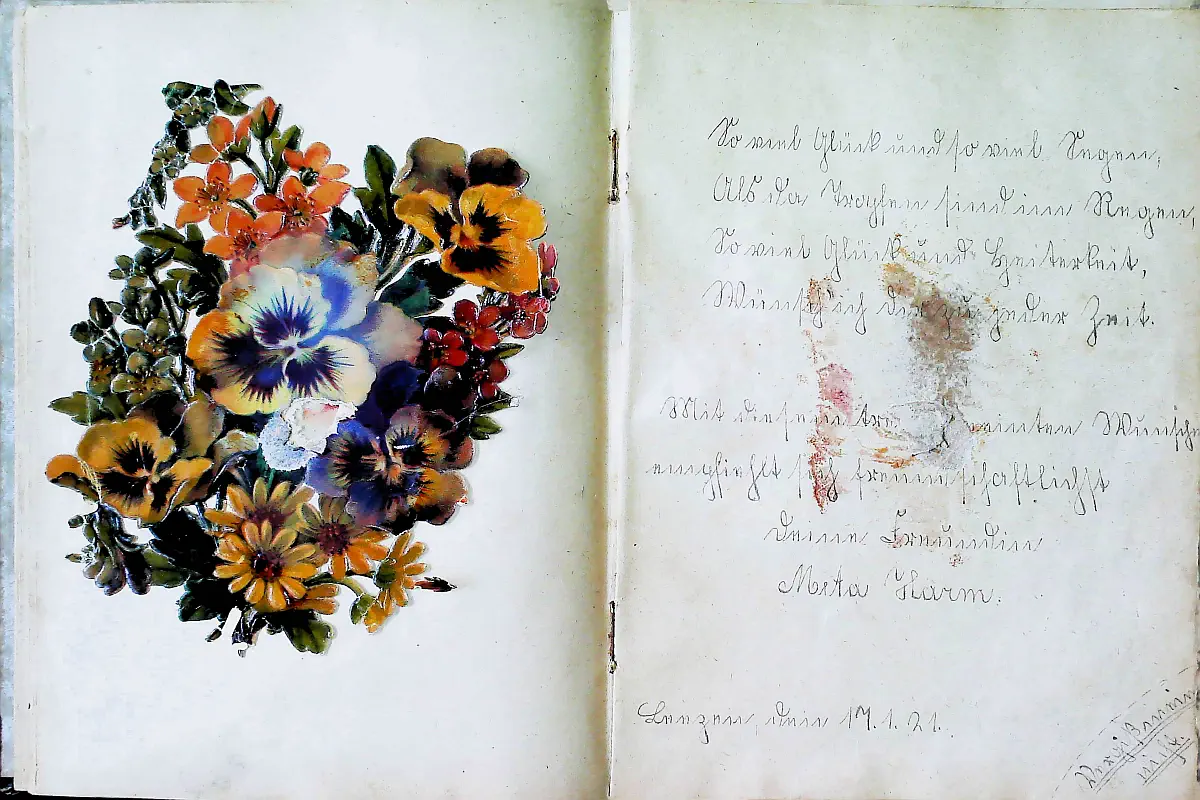 So viel Glück und so viel Segen,
Als da Tropfen sind im Regen,
So viel Glück und Heiterkeit,
Wünsch ich dir zu jeder Zeit.
Mit diesem Wunsche
empfiehlt sich freundschaftlichst
Deine Freundin
Meta Harm.
Lenzen, den 17.1.21.
Vergißmein
nicht.